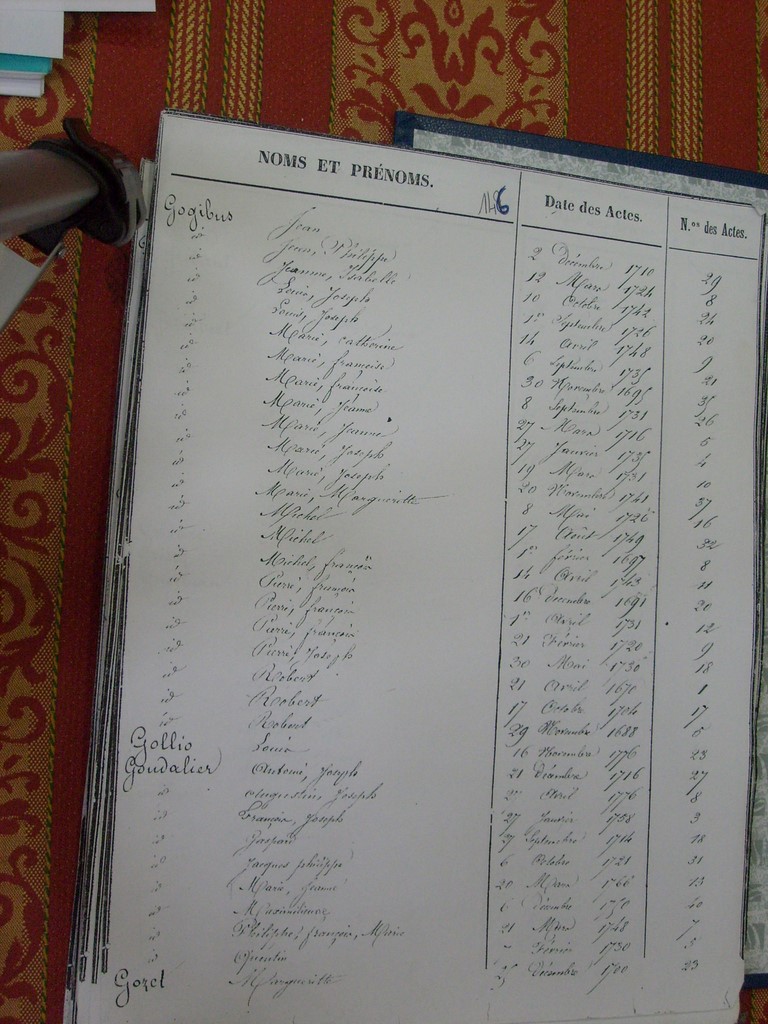 NOMS ET PRÉNOMS. 146 Date des Actes. N.os des Actes.
Gogibus Jean 2 Décembre 1710 29
id Jean, Philippe 12 Mars 1724 8
id Jeanne, Isabelle 10 Octobre 1742 24
id Louis, Joseph 1er Septembre 1726 20
id Louis, Joseph 14 Avril 1748 9
id Marie, catherine 6 Septembre 1735 21
id Marie, francoise 30 Novembre 1695 35
id Marie, francoise 8 Septembre 1731 26
id Marie, Jeanne 27 Mars 1716 5
id Marie, Jeanne 27 Janvier 1735 4
id Marie, Joseph 19 Mars 1731 10
id Marie, Joseph 20 Novembre 1741 37
id Marie, Marguerite 8 Mai 1726 16
id Michel 17 Août 1749 32
id Michel 1er février 1697 8
id Michel, françois 14 Avril 1743 11
id Pierre, françois 16 Decembre 1691 20
id Pierre, françois 1er Avril 1731 12
id Pierre, françois 21 Février 1720 9
id Pierre, Joseph 30 Mai 1730 18
id Robert 21 Avril 1670 1
id Robert 17 Octobre 1704 17
id Robert 29 Novembre 1688 5
Gollio Louis 16 Novembre 1776 23
Goudalier Antoine, Joseph 21 Décembre 1716 27
id Augustin, Joseph Avril 1776 8
id François, Joseph 27 Janvier 1758 3
id Gaspard 27 Septembre 1714 18
id Jacques philippe 6 Octobre 1721 31
id Marie, Jeanne 20 Mars 1766 13
id Maximilienne 6 décembre 40
id Philippe, françois, Marie 21 Mars 1748 7
id Quentin Février 1730 5
Gozet Marguerite 25 Décembre 1700 23